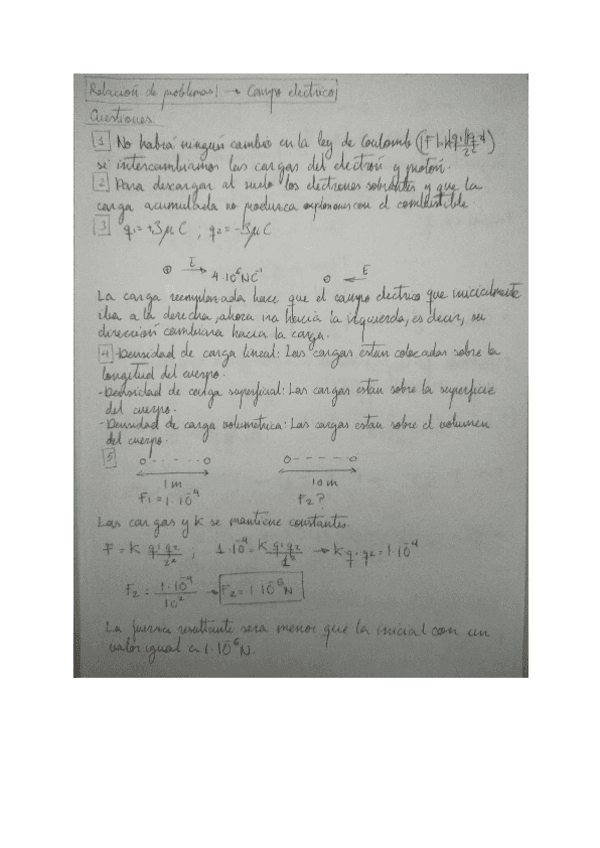 Relación de problemas 1 → Campo eléctrico
Cuestiones
1 No habrá ningún cambio en la ley de Coulomb
si intercambiamos las cargas del electrón y protón.
2 Para descargar al suelo los electrones sobrantes y que la
carga acumulada no produzca explosiones con el combustible
3 q1=+3μC ; q2=-3μC
E E
4·10⁶NC⁻¹
La carga reemplazada hace que el campo electrico que inicialmente
iba a la derecha, ahora ira hacia la izquierda, es decir, su
dirección cambiara hacia la carga.
4 -Densidad de carga lineal: Las cargas están colocadas sobre la
longitud del cuerpo.
-Densidad de carga superficial: Las cargas estan sobre la superficie
del cuerpo.
-Densidad de carga volumetrica: Las cargas estan sobre el volumen
del cuerpo.
5
1m 10m
F1=1·10⁻⁴ F2?
Las cargas y k se mantiene constantes.
F=K q1·q2/r² ; 1·10⁻⁴=K q1·q2/1² → K q1·q2=1·10⁻⁴
F2=1·10⁻⁴/10² → F2=1·10⁻⁶N
La fuerza resultante sera menor que la inicial con un
valor igual a 1·10⁻⁶N.